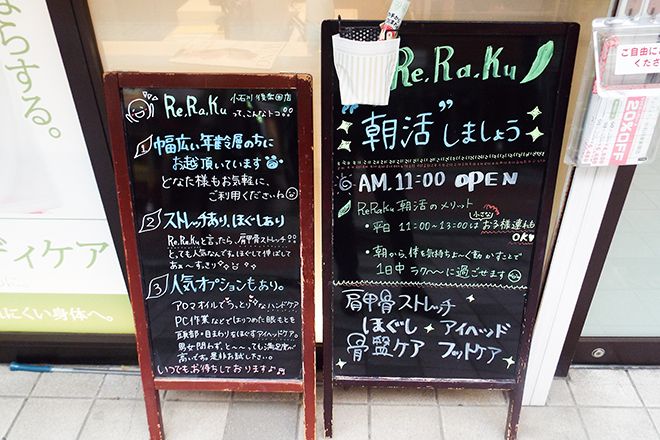 らする。
ディケア
にくい身体へ。
Re.Ra.Ku 小石川後楽園店
って、こんなトコ!!
1 幅広い年齢層の方に
お越頂いています
どなた様もお気軽に、
ご利用くださいね
2 ストレッチあり、ほぐしあり
Re.Ra.Kuと言ったら、肩甲骨ストレッチ!!
とっても人気なんです。ほぐして伸ばして
あぁ〜すっきり
3 人気オプションもあり。
アロマオイルでうっとりなハンドケア
PC作業などではりつめた眼もとを
頭部・目まわりをほぐすアイヘッドケア。
男女問わず、と〜〜っても満足度が
高いです。是非お試し下さい。
いつでもお待ちしております♪
Re.Ra.Ku
"朝活"しましょう
AM.11:00 OPEN
ReRaKu 朝活のメリット
・平日 11:00~13:00は 小さな お子様連れも
OK
・朝から、体を気持ちよ〜く動かすことで
1日中ラク〜に過ごせます
肩甲骨ストレッチ
ほぐし アイヘッド
骨盤ケア フットケア
ご自由に
くださ
20%OFF